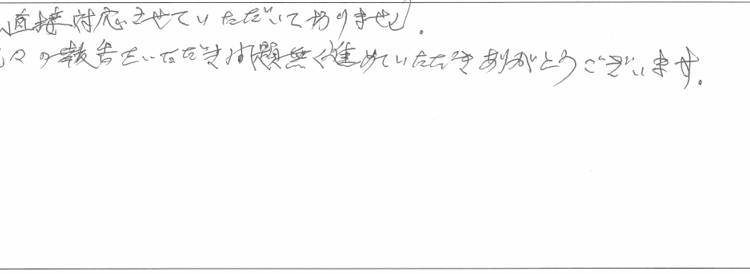 直接対応させていただいておりません.
々の報告をいただき問題無く進めていただきありがとうございます。